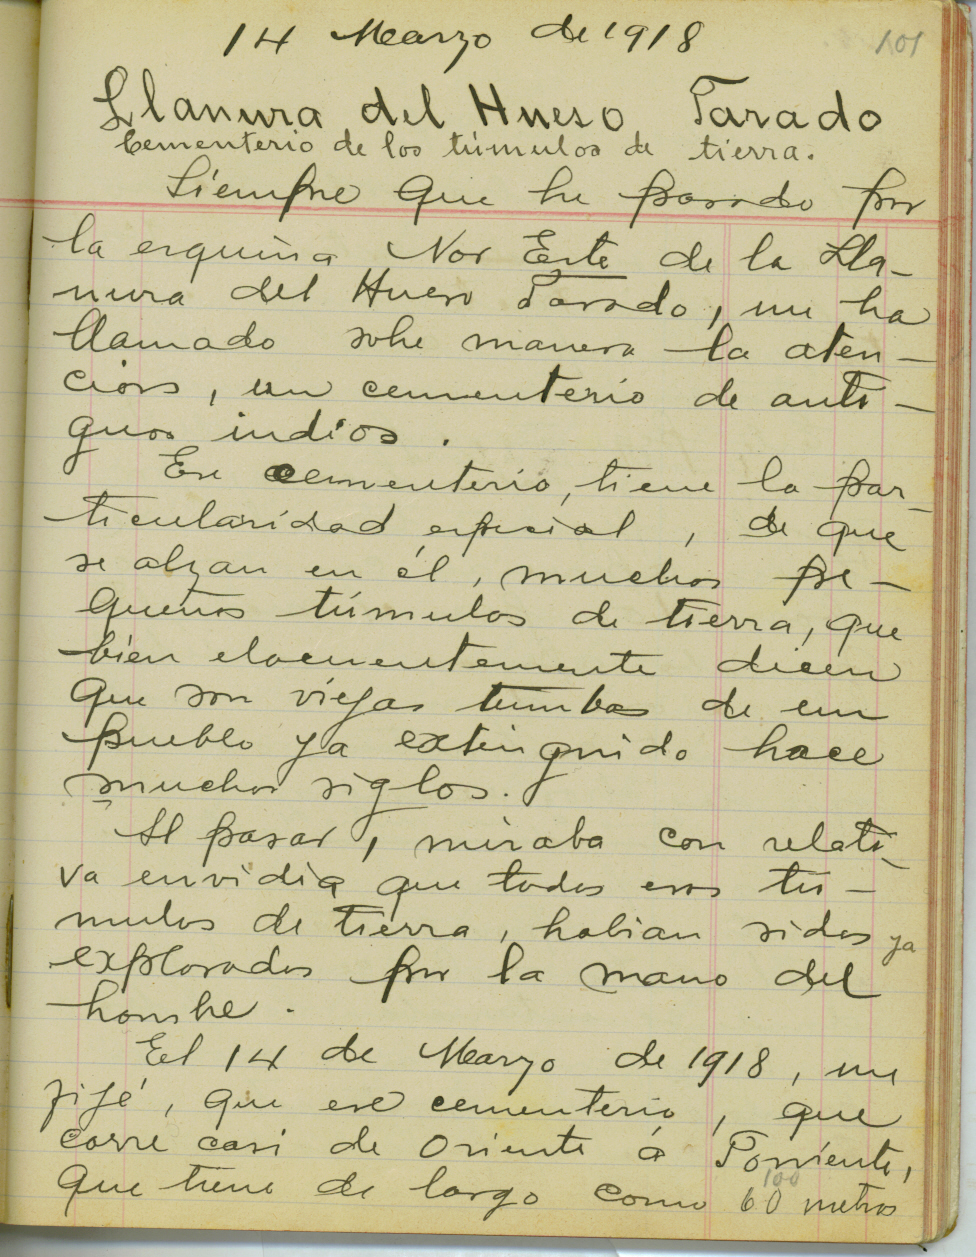 14 Marzo de 1918
101
Llanura del Hueso Parado
Cementerio de los túmulos de tierra.
Siempre que he pasado por
la esquina Nor Este de la Lla-
nura del Hueso Parado, me ha
llamado sobre manera la aten-
ción, un cementerio de anti-
guos indios.
Ese cementerio, tiene la par-
ticularidad especial, de que
se alzan en él, muchos pe-
queños túmulos de tierra, que
bien elocuentemente dicen
que son viejas tumbas de un
pueblo ya extinguido hace
muchos siglos.
Al pasar, miraba con relati-
va envidia que todos esos tú-
mulos de tierra, habian sidos ya
explorados por la mano del
hombre.
El 14 de Marzo de 1918, me
fijé, que ese cementerio, que
corre casi de Oriente á Poniente,
100
que tiene de largo como 60 metros